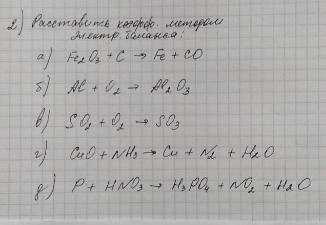 2) Расставить коэфф. методом
электр. баланса:
а) Fe₂O₃ + C → Fe + CO
б) Al + O₂ → Al₂O₃
в) SO₂ + O₂ → SO₃
г) CuO + NH₃ → Cu + N₂ + H₂O
д) P + HNO₃ → H₃PO₄ + NO₂ + H₂O